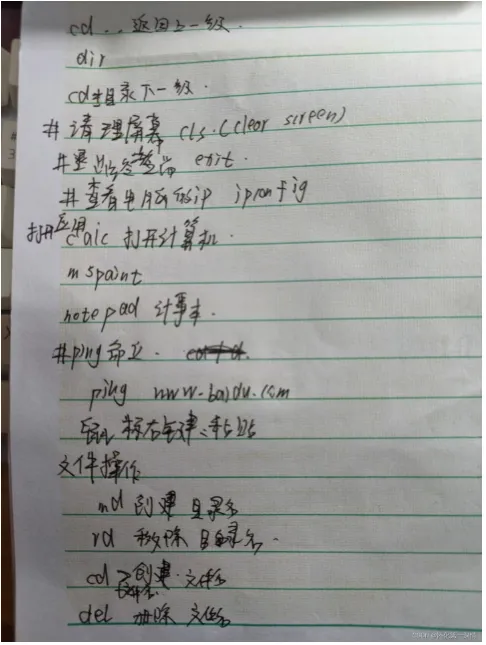 cd .. 返回上一级.
dir
cd 目录下一级.
# 清理屏幕 cls.(clear screen)
# 退出终端 exit.
# 查看电脑的ip ipconfig
打开应用 calc 打开计算机.
mspaint
notepad 计事本.
#ping 命令.
ping www.baidu.com
鼠标右键:粘贴
文件操作
md 创建 目录名
rd 移除 目录名.
cd > 创建. 文件名
del 删除 文件名